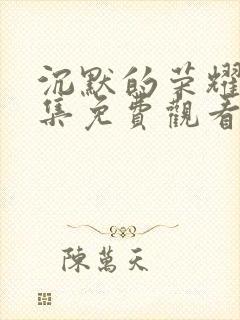 沉默的荣耀
集免費觀看
陳萬天